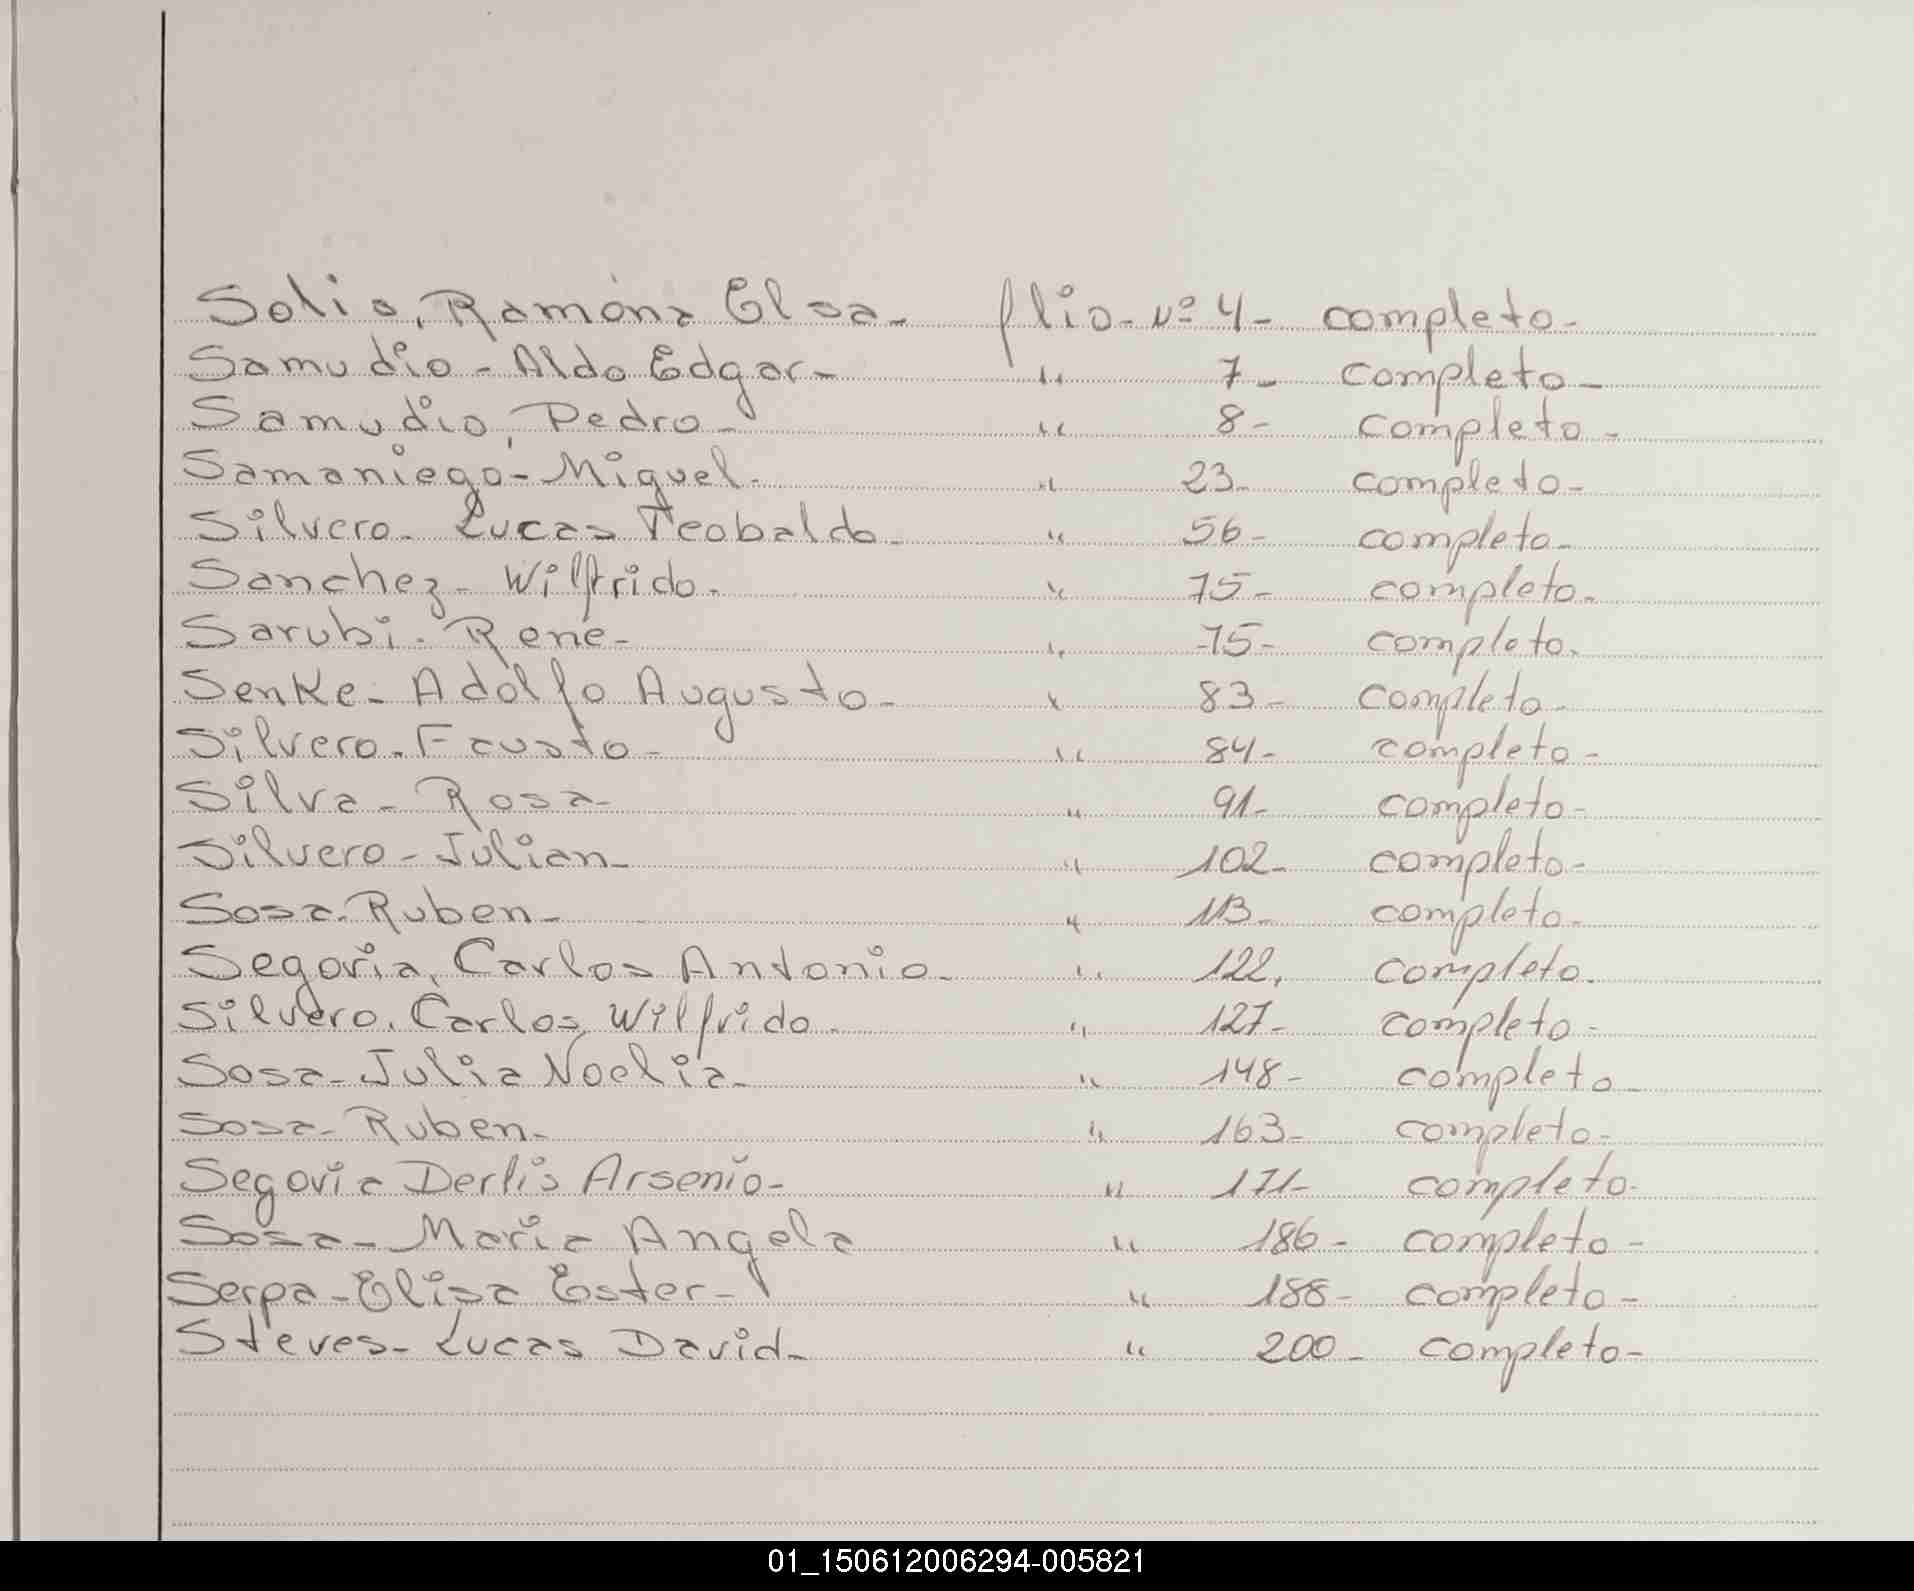 Solis, Ramona Elsa- flio- nº 4- completo-
Samudio- Aldo Edgar- " 7- completo-
Samudio, Pedro- " 8- completo-
Samaniego- Miguel- " 23- completo-
Silvero- Lucas Teobaldo- " 56- completo-
Sanchez- Wilfrido- " 75- completo-
Sarubi- René- " 75- completo-
Senke- Adolfo Augusto- " 83- completo-
Silvero- Fausto- " 84- completo-
Silva- Rosa- " 91- completo-
Silvero- Julian- " 102- completo-
Sosa- Ruben- " 113- completo-
Segovia, Carlos Antonio- " 122, completo-
Silvero, Carlos Wilfrido- " 127- completo-
Sosa- Julia Noelia- " 148- completo-
Sosa- Ruben- " 163- completo-
Segovia Derlis Arsenio- " 171- completo-
Sosa- Maria Angela " 186- completo-
Serpa- Elisa Ester- " 188- completo-
Steves- Lucas David- " 200- completo-
01_150612006294-005821